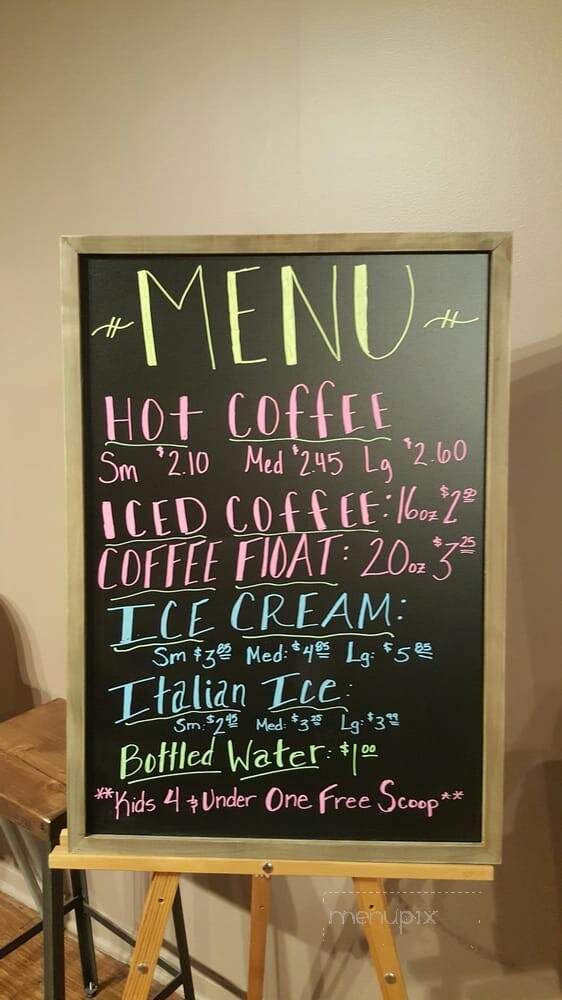 MENU
HOT COFFEE
Sm $2.10 Med $2.45 Lg $2.60
ICED COFFEE: 16oz $2.50
COFFEE FLOAT: 20oz $3.25
ICE CREAM:
Sm $3.85 Med: $4.85 Lg: $5.85
Italian Ice:
Sm: $2.45 Med: $3.25 Lg: $3.99
Bottled Water: $1.00
**Kids 4 & Under One Free Scoop**
menupix